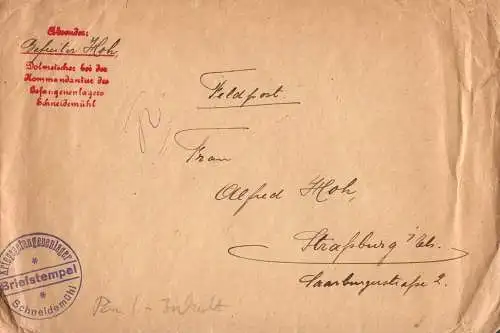 Absender:
Gefreiter Hoh,
Dolmetscher bei der
Kommandantur des
Gefangenenlagers
Schneidemühl
Feldpost.
Frau
Alfred Hoh,
Straßburg i/Els.
Saarburgerstraße 2.
Kriegsgefangenenlager
Briefstempel
Schneidemühl